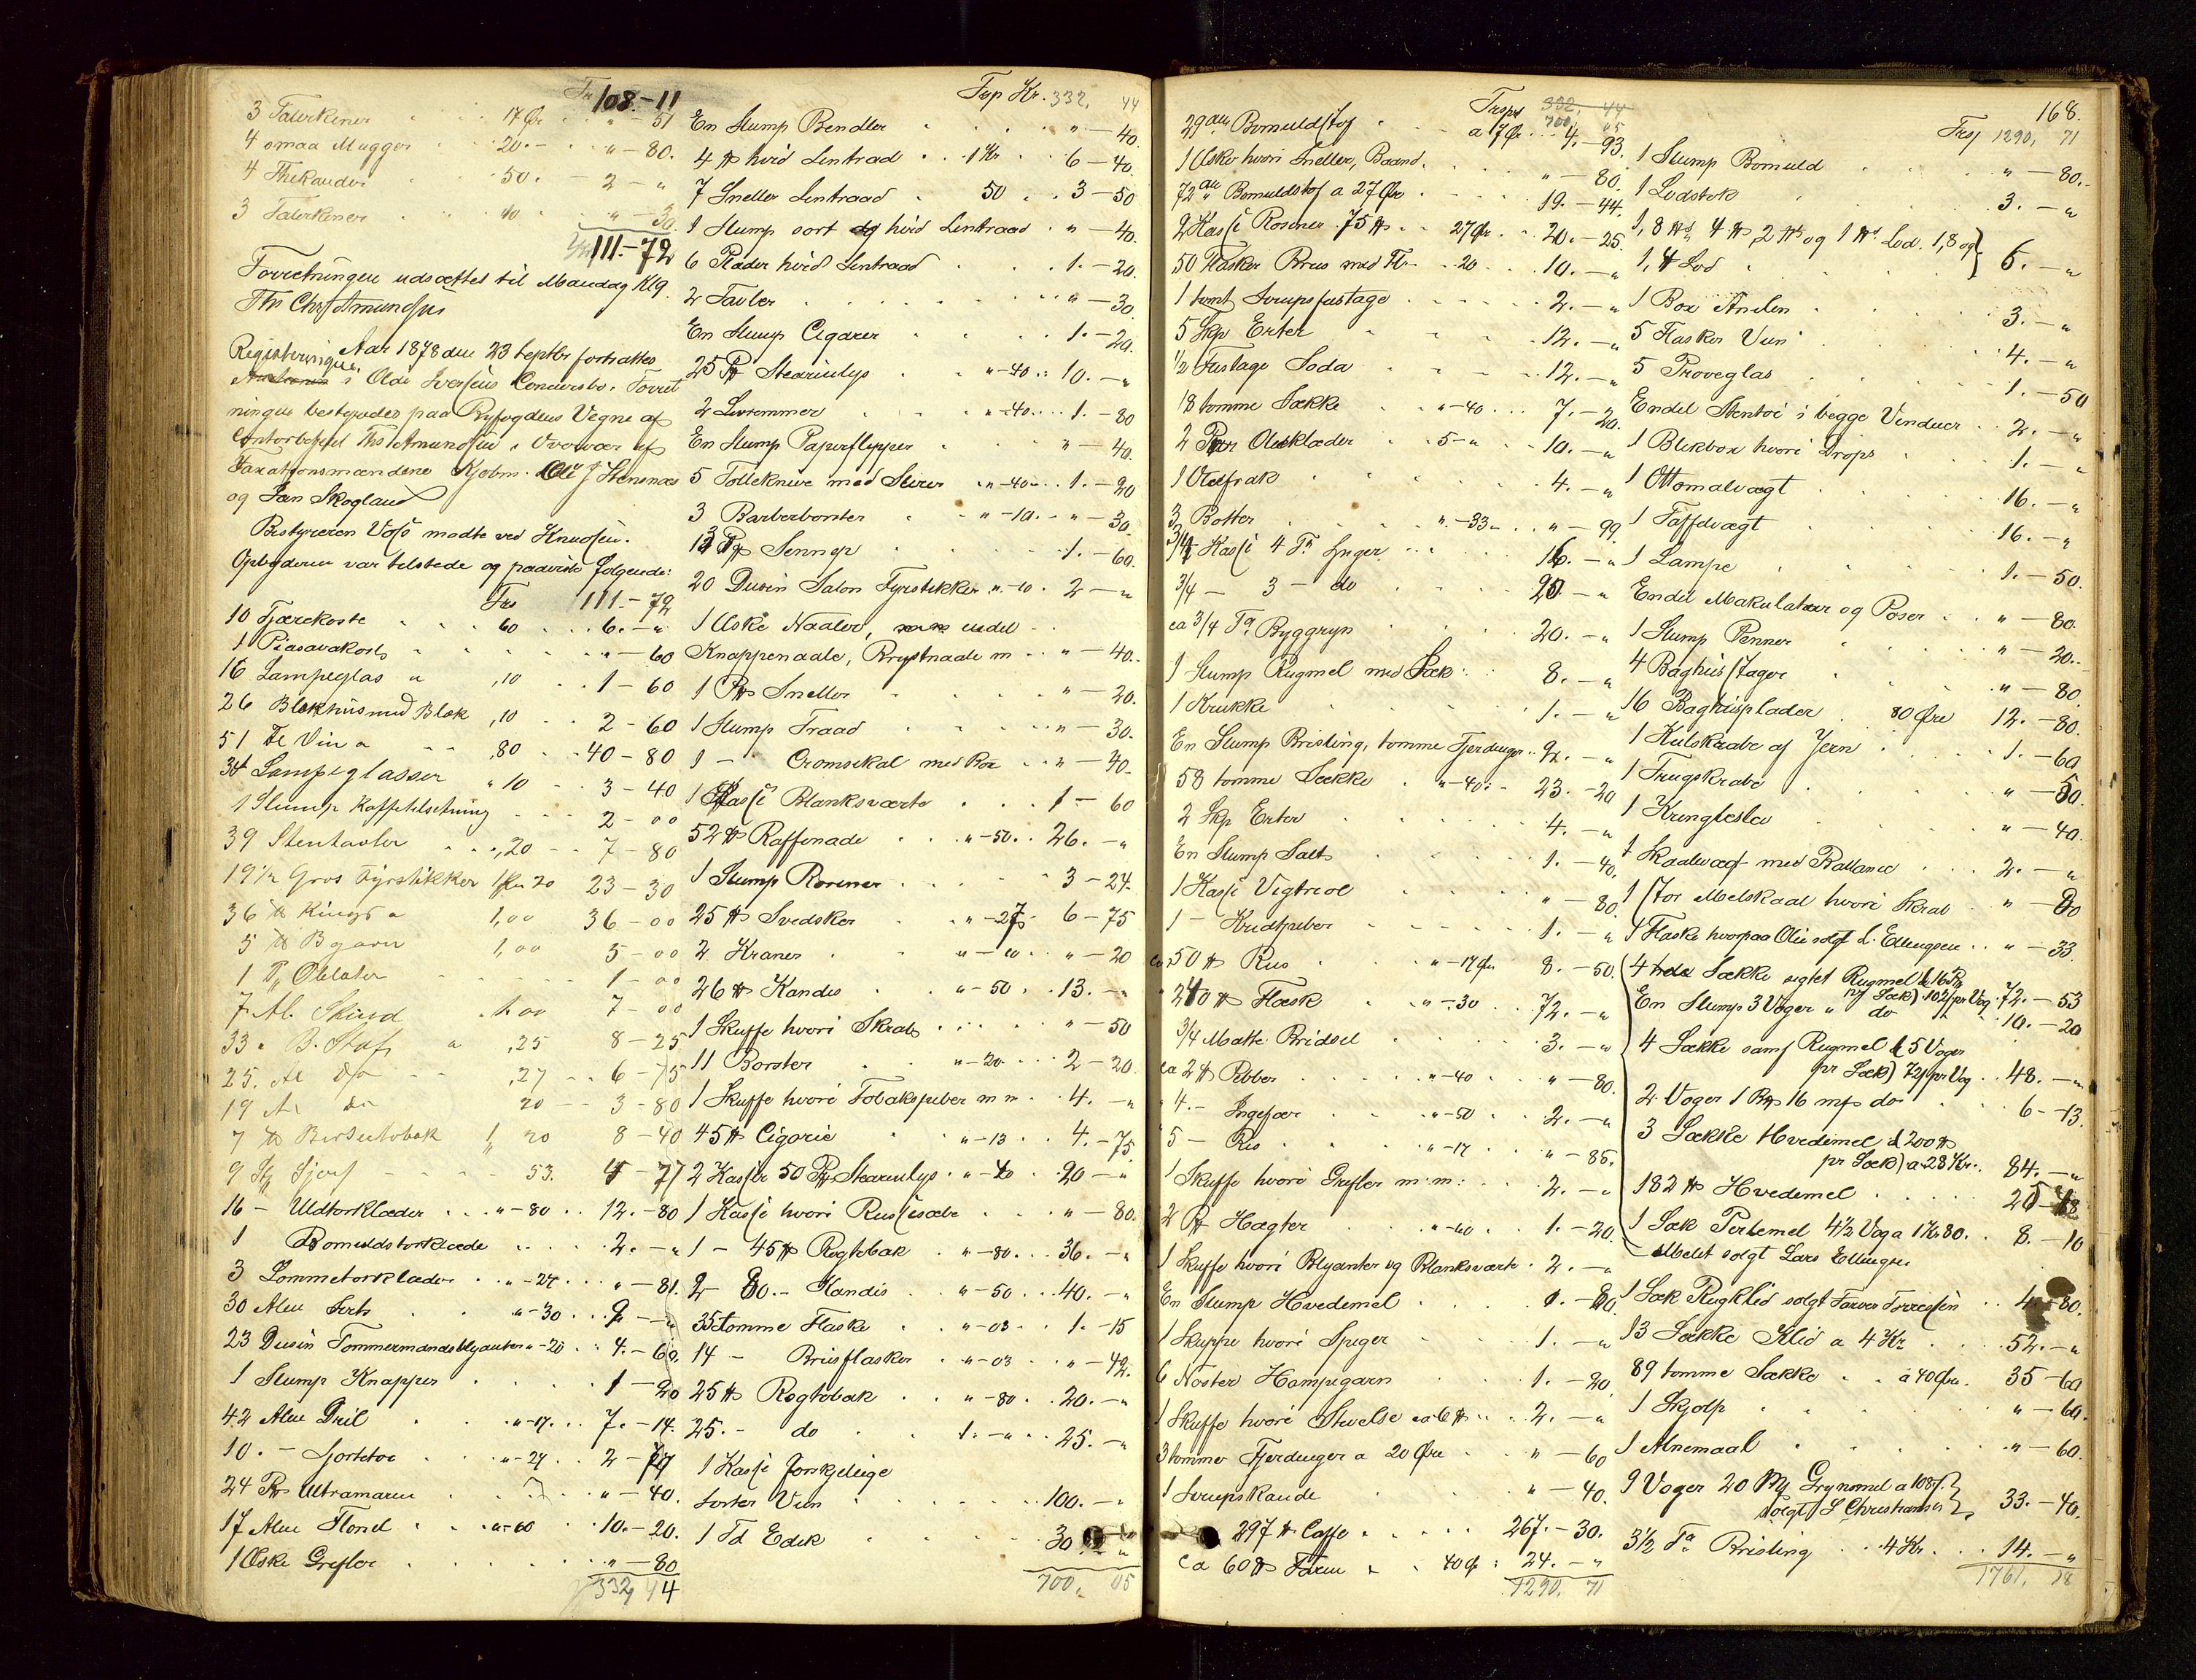 Tr 108.-11
3 Talerkener . . 17 Øre . " - 51
4 smaa Mugger . 20.- . " - 80.
4 Thekander . 50. - 2 - "
3 Talerkener . 10 . " - 30.
111.-72
Forretningen udsættes til Mandag Klg.
Ths Chr Amundsen
Aar 1878 den 23 Septbr fortsattes
Registeringen
i Olde Iversens Concursbo. Forret
ningen bestyredes paa Byfogdens Vegne af
Contorbetjent Ths Amundsen i Overvær af
Taxationsmændene Kjøbm. Ole J Stensnæs
og Jan Skogland
Bestyreren Voss mødte ved Knudsen.
Opbyderen var tilstede og paaviste følgende:
Trs 111.-72
10 Tjærekoste . . 60 . . 6. - "
1 Piasavakost . . . . " - 60
16 Lampeglas a ,10 . . 1 - 60
26 Blækhus med Blæk ,10 . . 2 - 60
51 Fl Vin a . . ,80 . . 40 - 80
34 Lampeglasser " 10 . . 3 - 40
1 Slump Kaffetilsetning . . . 2 - 00
39 Stentavler . . ,20 . . 7 - 80
19½ Gros Fyrstikker 1 Kr 20 23 - 30
36 ℔ Kings a 1,00 36 - 00
5 ℔ B garn 1,00 5 - 00
1 P. Oblater . . . 1 - 00
7 Al. Skind . 1.00 7 - 00
33 " B. Stof a ,25 8 - 25
25. Al do . . ,27 . . 6 - 75
19 Al do 20 . . 3 - 80
7 ℔ Bersentobak 1, 20 8 - 40
9 53. 4 - 77
16 - Uldtørklæder . . " - 80 . . 12. - 80
1 Bomuldstørklæde . . . . 2. - "
3 Lommetørklæder . . " - 27 . . " - 81.
30 Alen Serts . . " - 30 . . 9 - "
23 Dusin Tømmermandsblyanter " - 20 . . 4. - 60.
1 Slump Knapper . . . . 1 - 20
42 Alen Dril . . " - 17 . . 7. - 14.
10. - Skjortetøi . . " - 27 . . 2 - 70
24 Pk Ultramarin . . . . " - 40.
17 Alen Flonel . . a - 60 . . 10. - 20.
1 Æske Grifler . . . . " - 80
332,44
Trsp Kr. 332, 44
En Slump Bendler . . . . " - 40.
4 ℔ hvid Lintraad . . 1 Kr . . 6 - 40.
7 Sneller Lintraad . 50 . . 3 - 50
1 Slump sort og hvid Lintraad . " - 40.
6 Ræder hvid Lintraad . . . 1. - 20.
2 Tavler . . . . . " - 30
En Slump Cigarer . . . 1. - 20.
25 Pk Stearinlys . . " - 40 . : 10. - "
2 Livremmer . . " - 40 . . . 1. - 80
En Slump Papirflipper . . . " - 40.
5 Tolleknive med Slirer . " - 40 . . 1. - 20
3 Barberborster . . " - 10. - " - 30.
13 Pk Sennep . . . . 1. - 60.
20 Dusin Salon Fyrstikker " - 10 . 2 - "
1 Æske Naaler, endel -
Knappenaale, Brystnaale m . . " - 40.
1 Pk Sneller . . . . " - 20.
1 Slump Traad . . . . " - 30.
1 - Cromsikal med Box . . " - 40.
1 Kasse Blanksværte . . . 1 - 60
52 ℔ Raffenade . . " - 50. . 26. - "
1 Slump Rosiner . . . . 3 - 24.
25 ℔ Svedsker . . " - 27. 6 - 75
2 Kraner . . " - 10 . . " - 20
26 ℔ Kandis . . " - 50 . . 13. - "
1 Skuffe hvori Skrab . . . . " - 50
11 Børster . . " - 20 . . 2 - 20.
1 Skuffe hvori Tobakspiber m m . . 4. - "
45 ℔ Cigorie . . " - 13 . . 4. - 75.
2 Kasser 50 Pk Stearinlys . " - 40 . . 20 - "
1 Kasse hvori Russesæbe . . . " - 80.
1 - 45 ℔ Røgtobak . " - 80 . . 36. - "
2 - 80.- Kandis . . " - 50 . . 40. - "
35 tomme Flaske . . " - 03 . . 1. - 15
14 - Brusflasker . . " - 03 . . " - 42.
25 ℔ Røgtobak . . " - 80 . . 20. - "
25. - do . . 1. - " . . 25. - "
1 Kasse forskjelige
Sorter Vin . . . . 100. - "
1 Td Edik . . . . 30 - "
700, 05
Trspt 332, 44
700, 05
29 al. Bomuldstof . . a 17 Øre . . 4. - 93.
1 Æske hvori Sneller, Baand . . . " - 80.
72 al. Bomuldstof a 27 Øre . . . 19. - 44.
2 Kasse Rosiner 75 ℔ . . 27 Øre . . 20. - 25.
50 Flasker Brus med Fl . . 20 . . 10. - "
1 tomt Sirupsfastage . . . . 2. - "
5 Skp Erter . . . . 12. - "
½ Fustage Soda . . . . 12. - "
18 tomme Sække . . " - 40 . . 7. - 20.
2 Par Olieklæder . . 5 - " . . 10. - "
1 Oliefrak . . . . 4. - "
3 Bøtter . . . " - 33 - . . " - 99.
3/4 Kasse 4 T. Spiger . . . 16. - "
3/4 - 3 - do . . . 20. - "
ca 3/4 Tø Byggryn . . . 20. - "
1 Slump Rugmel med Sæk . . . 8. - "
1 Krukke . . . . 1. - "
En Slump Brisling, tomme Fjerdinger . . 2. - "
58 tomme Sække . . " - 40 . . 23. - 20
2 Skp Erter . . . . 4. - "
En Slump Salt . . . . 1. - 40.
1 Kasse Vigtriol . . . . " - 80.
1 - Kridtpiber . . . . 1. - "
ca 50 ℔ Ris . . " - 17 Øre 8. - 50.
" 240 ℔ Flæsk . . " - 30 . . 72. - "
3/4 Matte Bridsel . . . . 3. - "
ca 2 ℔ Peber . . . " - 40 . . " - 80.
" 4. - Ingefær . . . " - 50 . . 2. - "
" 5 - Ris . . . " - 17 . . " - 85.
1 Skuffe hvori Grifler m: m: . . 2. - "
2 Pk Hægter . . . " - 60 . . 1. - 20.
1 Skuffe hvori Blyanter og Blanksværte . 2. - "
En Slump Hvedemel . . . 1. - 80.
1 Skuppe hvori Spiger . . . 1. - "
6 Nøster Hampegarn . . . 1. - 20.
1 Skuffe hvori Stivelse ca 6 ℔ . . 2. - "
3 tomme Fjerdinger a 20 Øre . . " - 60
1 Sirupskande . . . . " - 40.
297 ℔ Caffe . . . . 267. - 30.
ca 60 ℔ Farin . . 40 Ø : 24. - "
1290. 71
168.
Trsp 1290, 71
1 Slump Bomuld . . . . " - 80.-
1 Lodstok . . . . 3. - "
1, 8 ℔, 4 ℔ 2 ℔ og 1 ℔ Lod. 1,8 og
1, 4 Lod . . . } 6. - "
1 Box Anilin . . . . 3. - "
5 Flasker Vin . . . . 4. - "
5 Prøveglas . . . . 1. - 50
Endel Stentøi i begge Vinduer . . 2. - "
1 Blikbox hvori Drops . . . 1. - "
1 Ottomalvægt . . . . 16. - "
1 Taffelvægt . . . . 16. - "
1 Lampe . . . . 1. - 50.
Endel Makulatur og Poser . . " - 80.
1 Slump Penner . . . . " - 20.-
4 Baghusstager . . . . " - 80.
16 Baghusplader . 80 Øre 12. - 80.
1 Kulskrabe af Jern . . . 1. - 60
1 Trugskrabe . . . . " - 50.
1 Kringlesla . . . . " - 40.
1 Skaalvægt med Ballance . . . 2. - "
1 stor Melskaal hvori Skrab . . " - 80
1 Flaske hvorpaa Olie solgt L. Ellingsen . . " - 33.
4 hele Sække sigtet Rugmel
pr Sæk) 102 pr Vog . 72. - 53
En Slump 3 Voger " do 10. - 20
4 Sække sam Rugmel à 5 Voger
pr Sæk) 72 pr Vog . . 48. - "
2 Voger 1 B℔ 16 mk do . . 6 - 13.
3 Sække Hvedemel à 200 ℔
pr Sæk) a 28 Kr . . 84. - "
182 ℔ Hvedemel . . . 25 - 48
1 Sæk Perlemel 4½ Vog a 1 Kr 80. . . 8. - 10
Melet solgt Lars Ellingsen
1 Sæk Rugklid solgt Farver Torressen . . 4. - 80.
13 Sække Klid a 4 Kr . . . 52. - "
89 tomme Sække . . a 40 Øre. 35 - 60
1 Skjolp . . . . " - 60.
1 Alnemaal . . . . " - 60.
9 Voger 20 Mk Grynmel a 108 }
solgt S Christiansen } 33. - 40.
3½ Tø Brisling . . 4 Kr . . . 14. - "
1761, 18